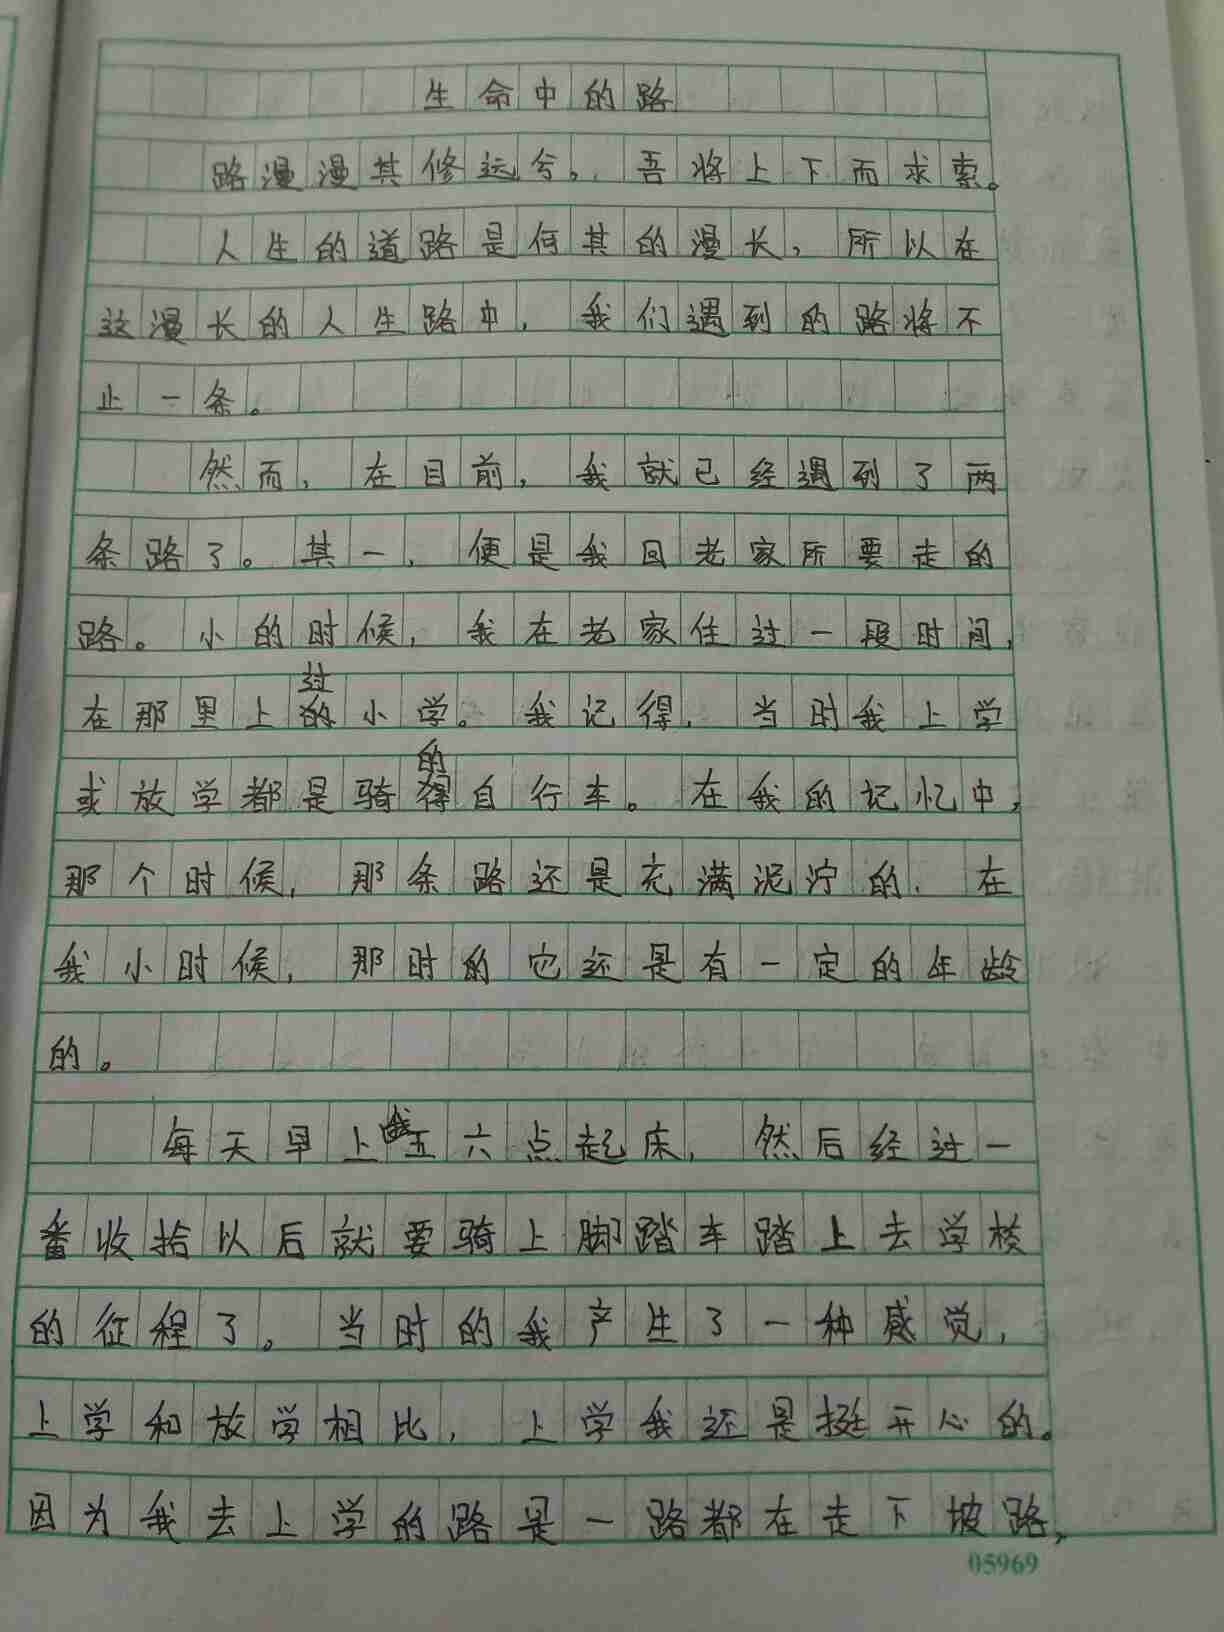 生命中的路
路漫漫其修远兮。吾将上下而求索。
人生的道路是何其的漫长，所以在
这漫长的人生路中，我们遇到的路将不
止一条。
然而，在目前，我就已经遇到了两
条路了。其一，便是我回老家所要走的
路。小的时候，我在老家住过一段时间，
在那里上过小学。我记得，当时我上学
或放学都是骑的自行车。在我的记忆中，
那个时候，那条路还是充满泥泞的，在
我小时候，那时的它还是有一定的年龄
的。
每天早上我五六点起床，然后经过一
番收拾以后就要骑上脚踏车踏上去学校
的征程了。当时的我产生了一种感觉，
上学和放学相比，上学我还是挺开心的。
因为我去上学的路是一路都在走下坡路，
05969